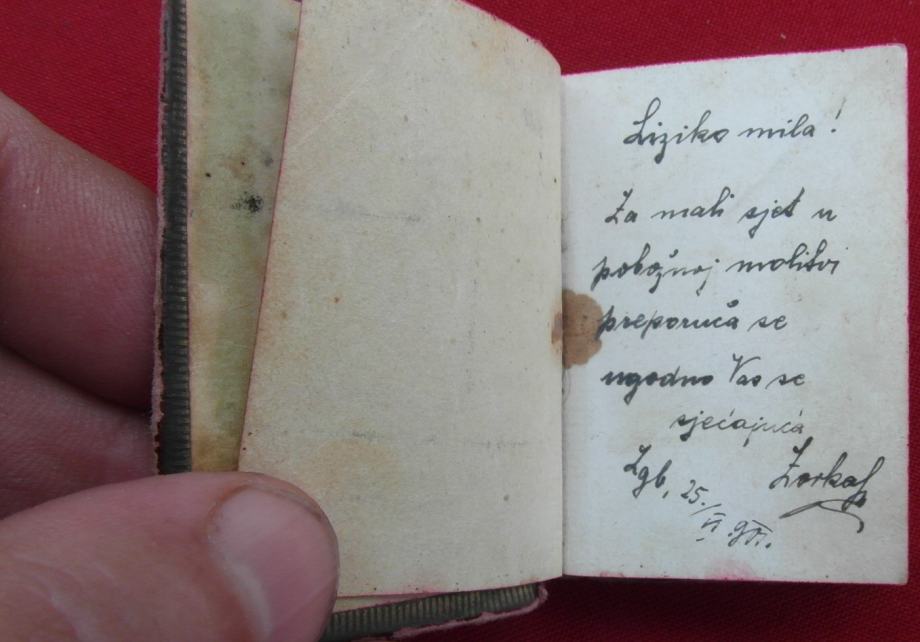 Liziko mila!
Za mali sjet u
pobožnoj molitvi
preporuča se
ugodno Vas se
sjećajuća
Zorka
Zgb, 25./VI.